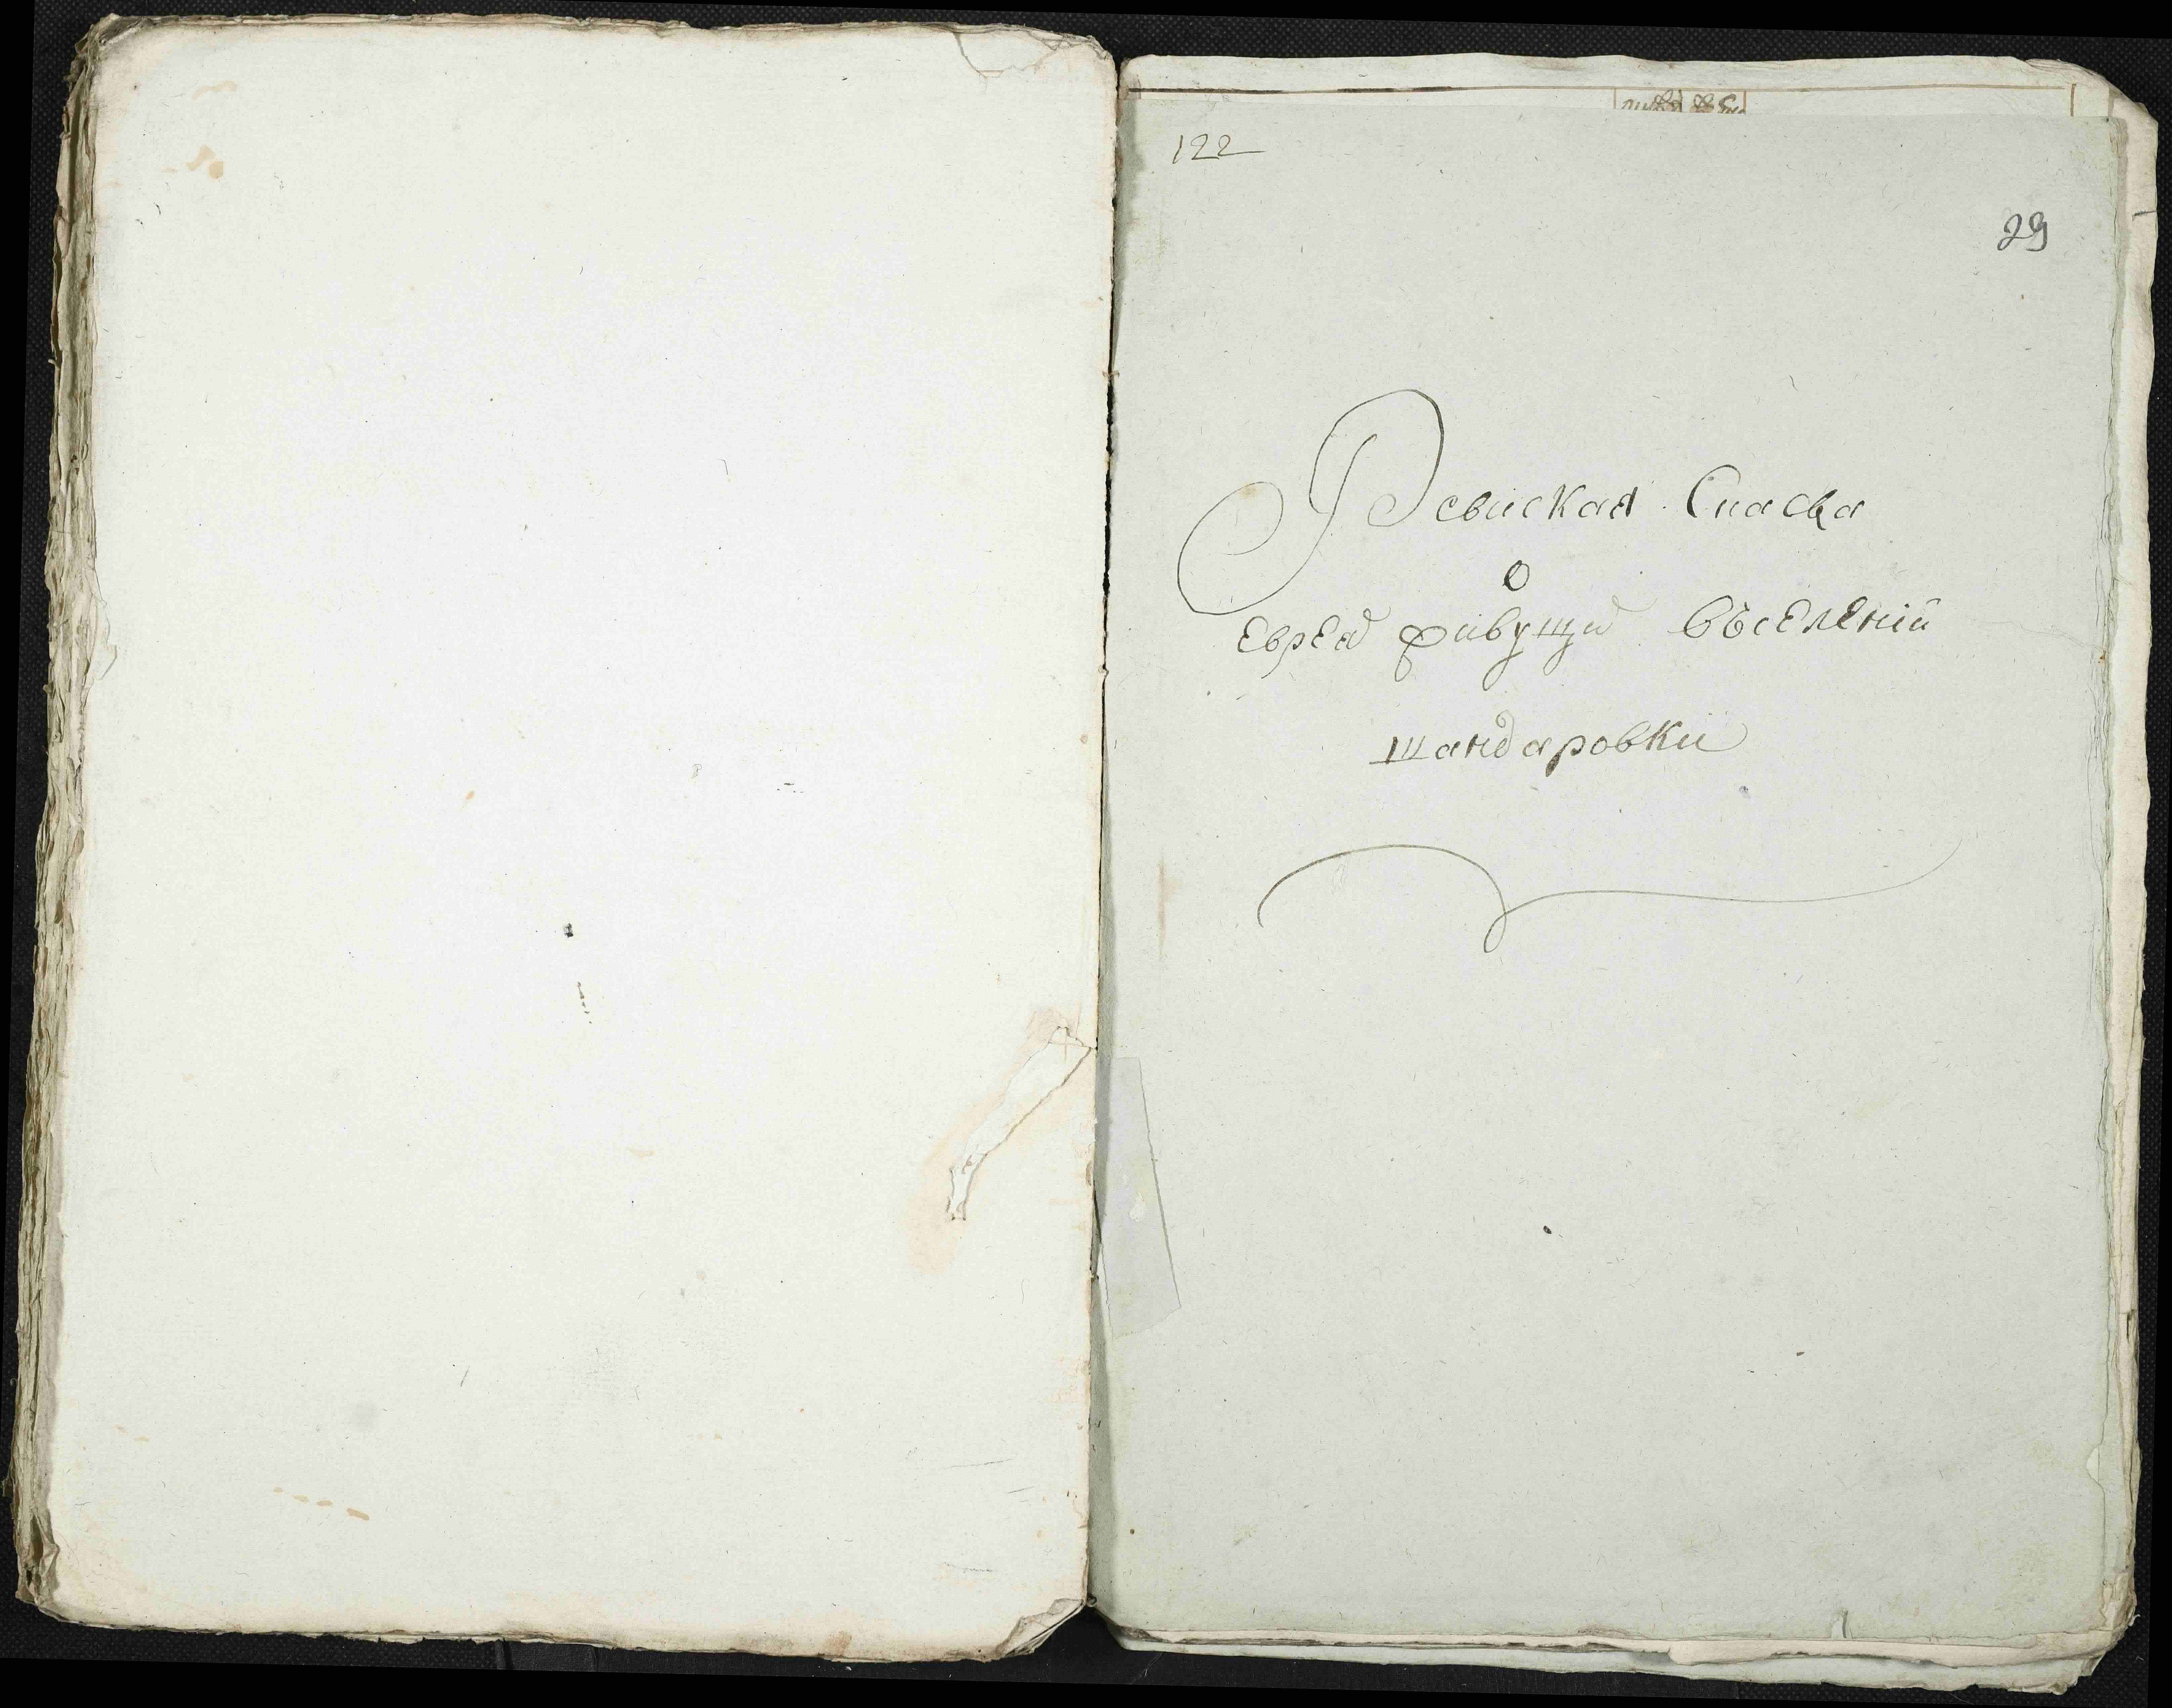 122
29
Ревиская Скаска
о
Еврея живущи въселеній
шандаровки